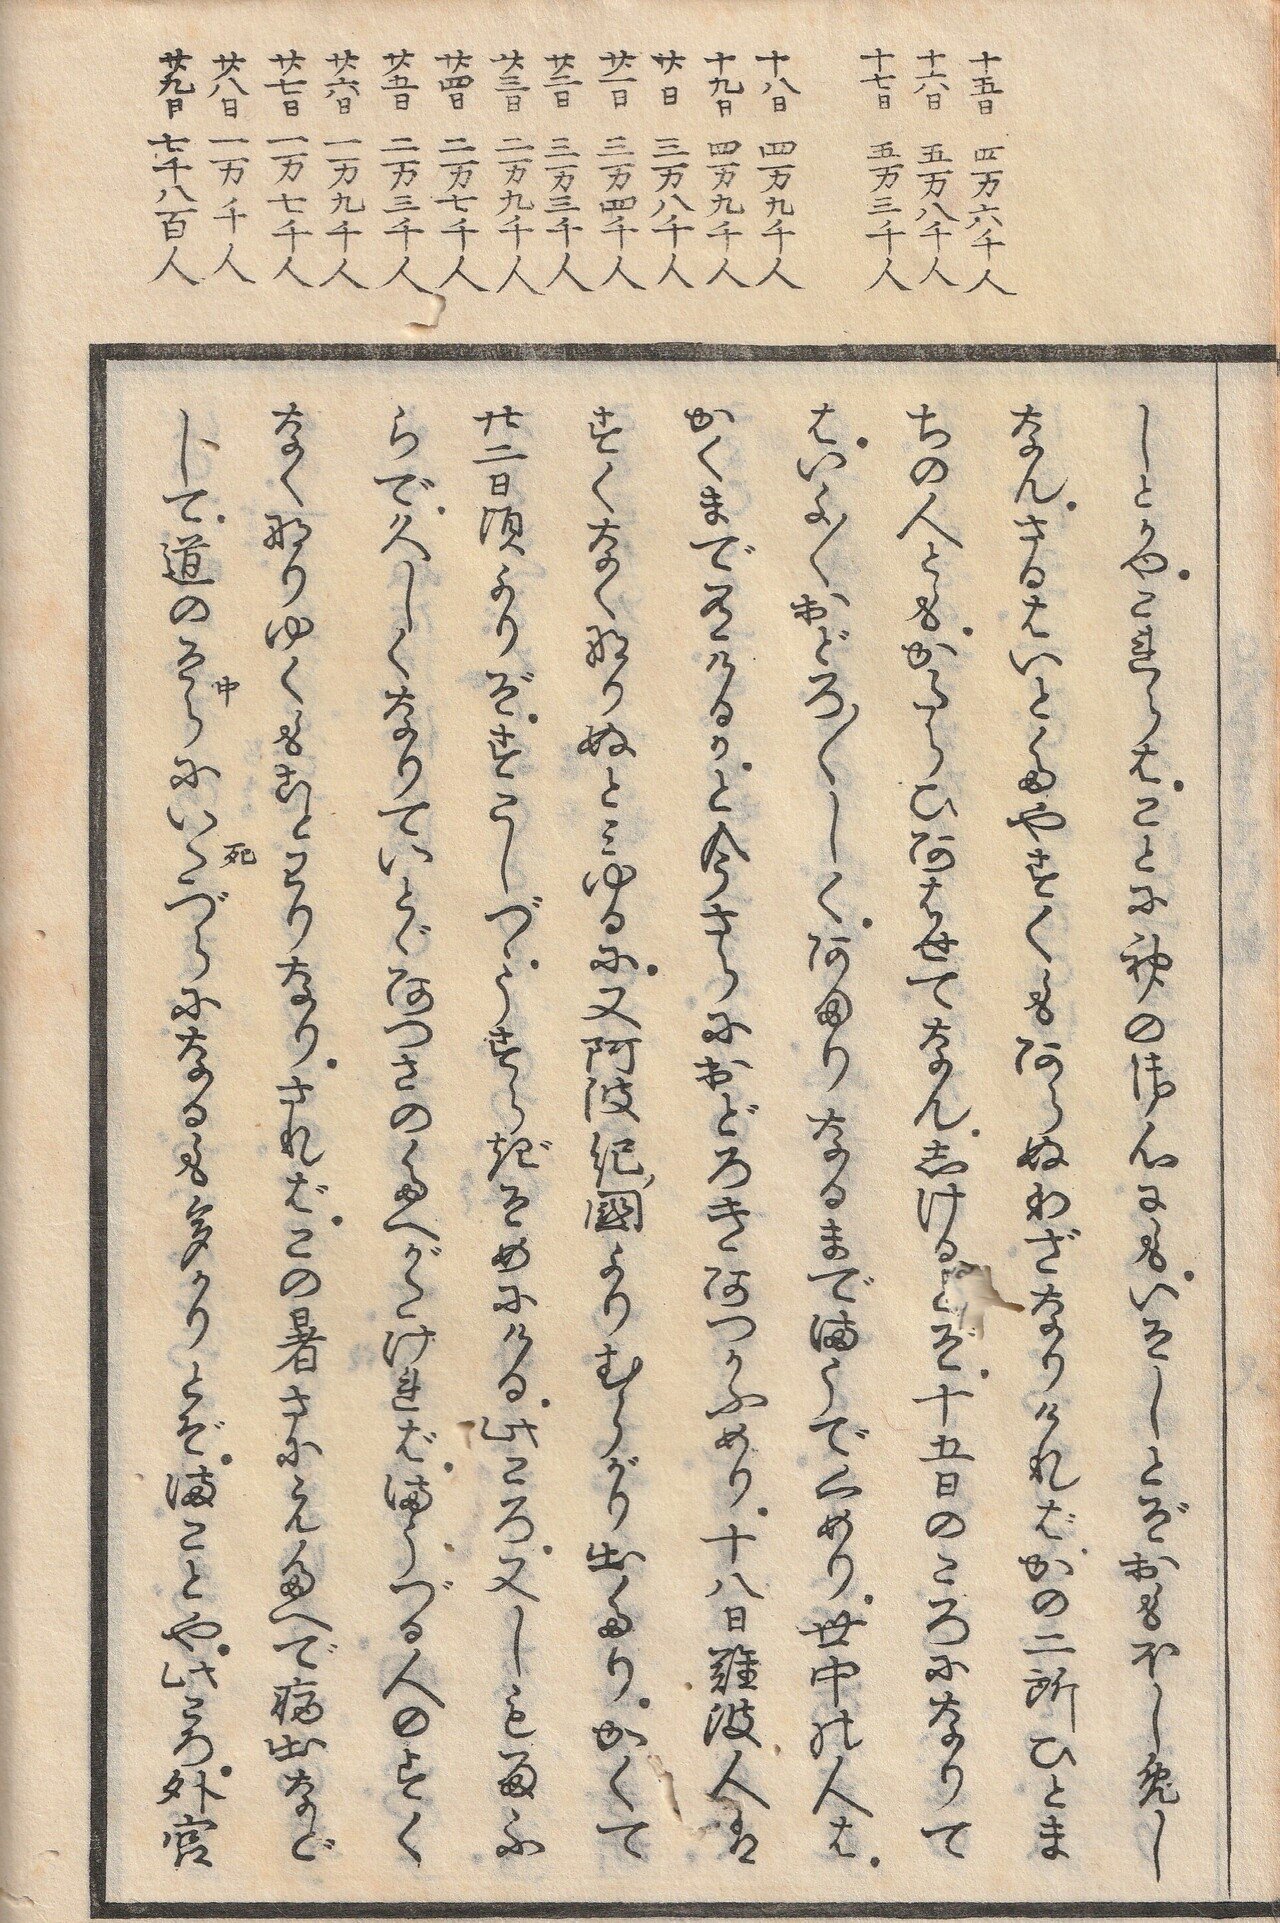 十五日 四万六千人
十六日 五万八千人
十七日 五万三千人
十八日 四万九千人
十九日 四万九千人
廿日 三万八千人
廿一日 三万四千人
廿二日 三万三千人
廿三日 二万九千人
廿四日 二万七千人
廿五日 二万三千人
廿六日 一万九千人
廿七日 一万七千人
廿八日 一万千人
廿九日 七千八百人
しとかや。これらは。ことに神の御心にも。いそしとぞおもほしめし
なん。さるはいとたやすくも阿らぬわざなりければ。かの二所ひとま
ちの人とも。かたらひ阿はせてなん。志けるとぞ。十五日のころになりて
は。いよ〳〵おどろ〳〵しく。阿まりなるまで満うでくめり。世中の人は。
かくまで有けるかと今さらにおどろき阿つかふめり。十八日難波人は
すくなく那りぬとみゆるに。又阿波紀國よりむらがり出たり。かくて
廿二日頃よりぞ。すこしづゝうすらぎそめにける。此ころ。又しもまふ
らで。久しくなりていとゞ阿つさのたへがたければ。満うづる人のすく
なく那りゆくもことわりなり。されば。この暑さにえたへで病出など
して。道のそらにいたづらになるも多かりとぞ。満ことや。此ころ。外宮
中
死